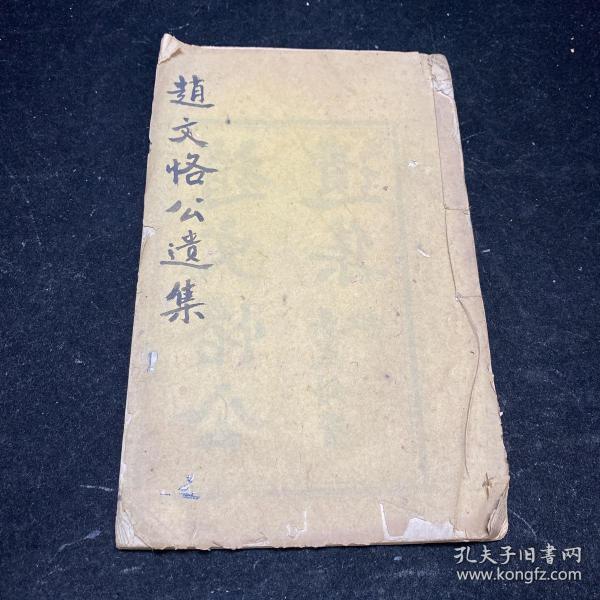 趙文恪公遺集
孔夫子旧书网
www.kongfz.com